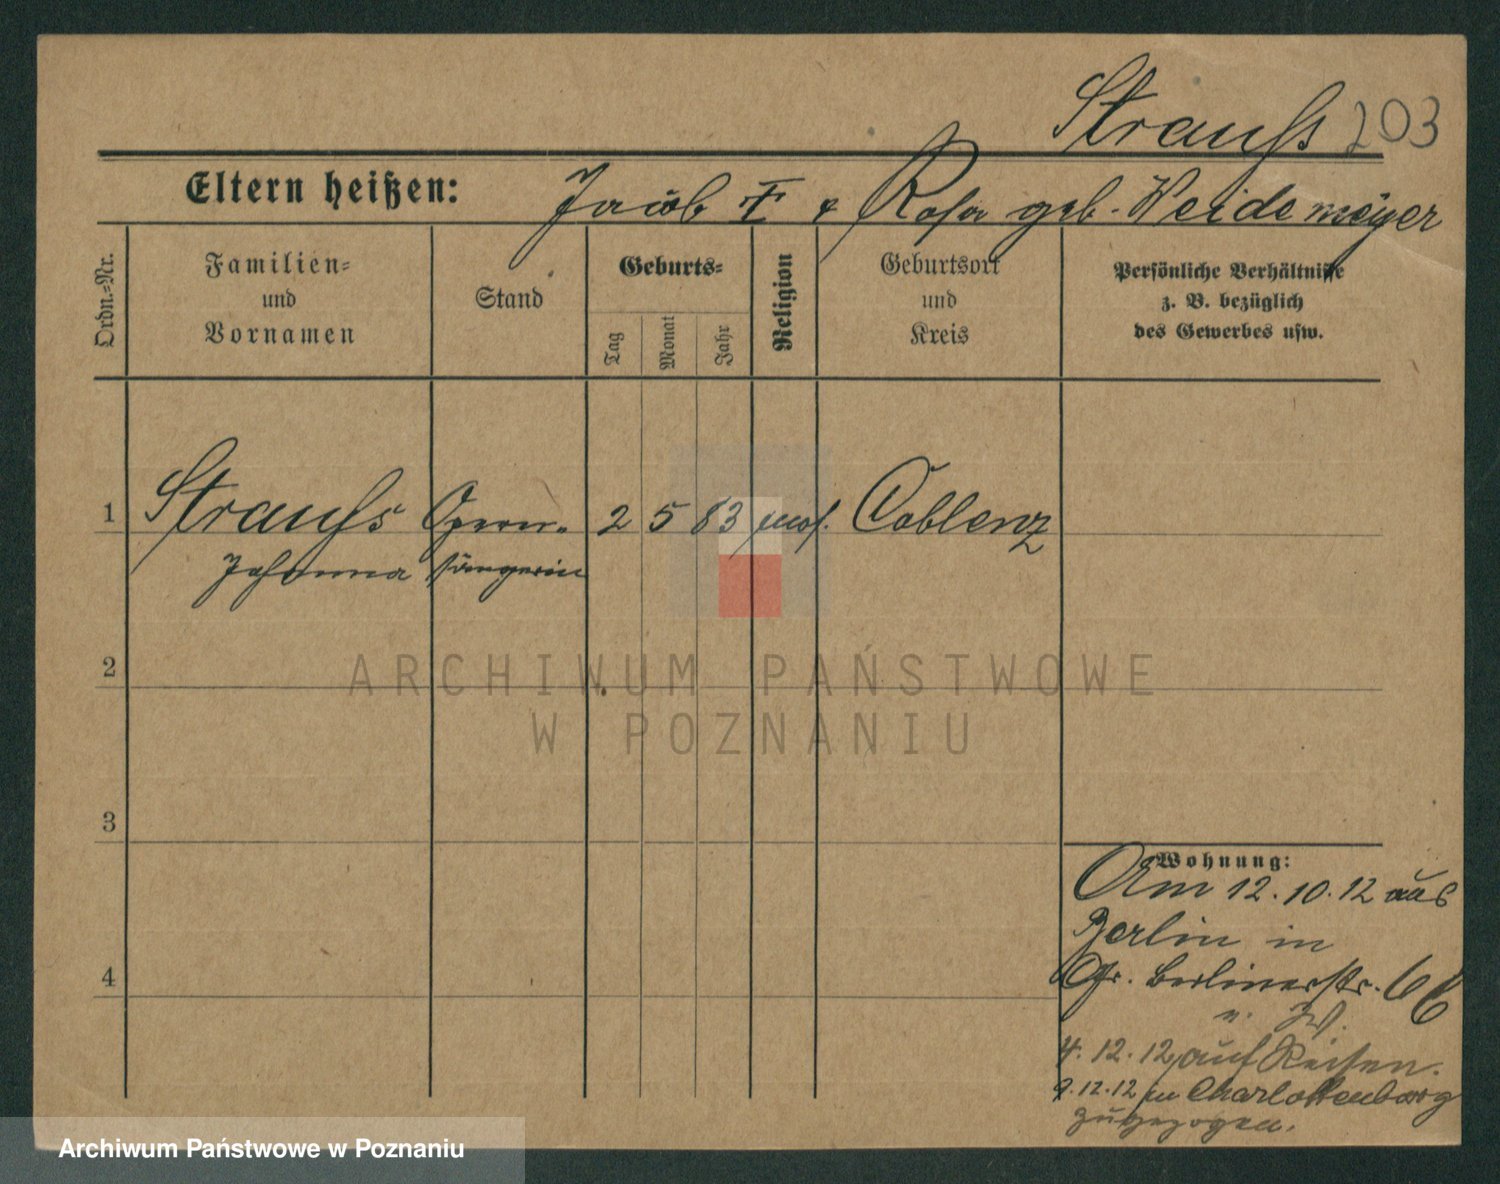 Strauss 203
Eltern heißen: Jacob † & Rosa geb. Weidemeyer
Ordn.=Nr.
Familien=
und
Vornamen
Stand
Geburts=
Tag
Monat
Jahr
Religion
Geburtsort
und
Kreis
Persönliche Verhältnisse
z. B. bezüglich
des Gewerbes usw.
1 Strauss Opern- 2 5 83 mos. Coblenz
Johanna sängerin
2
3
4
Wohnung:
Am 12.10.12 aus
Berlin in
Gr. Berlinerstr.
4.12.12 auf Reisen.
9.12.12 in Charlottenburg
zugezogen.
ARCHIWUM PAŃSTWOWE
W POZNANIU
Archiwum Państwowe w Poznaniu